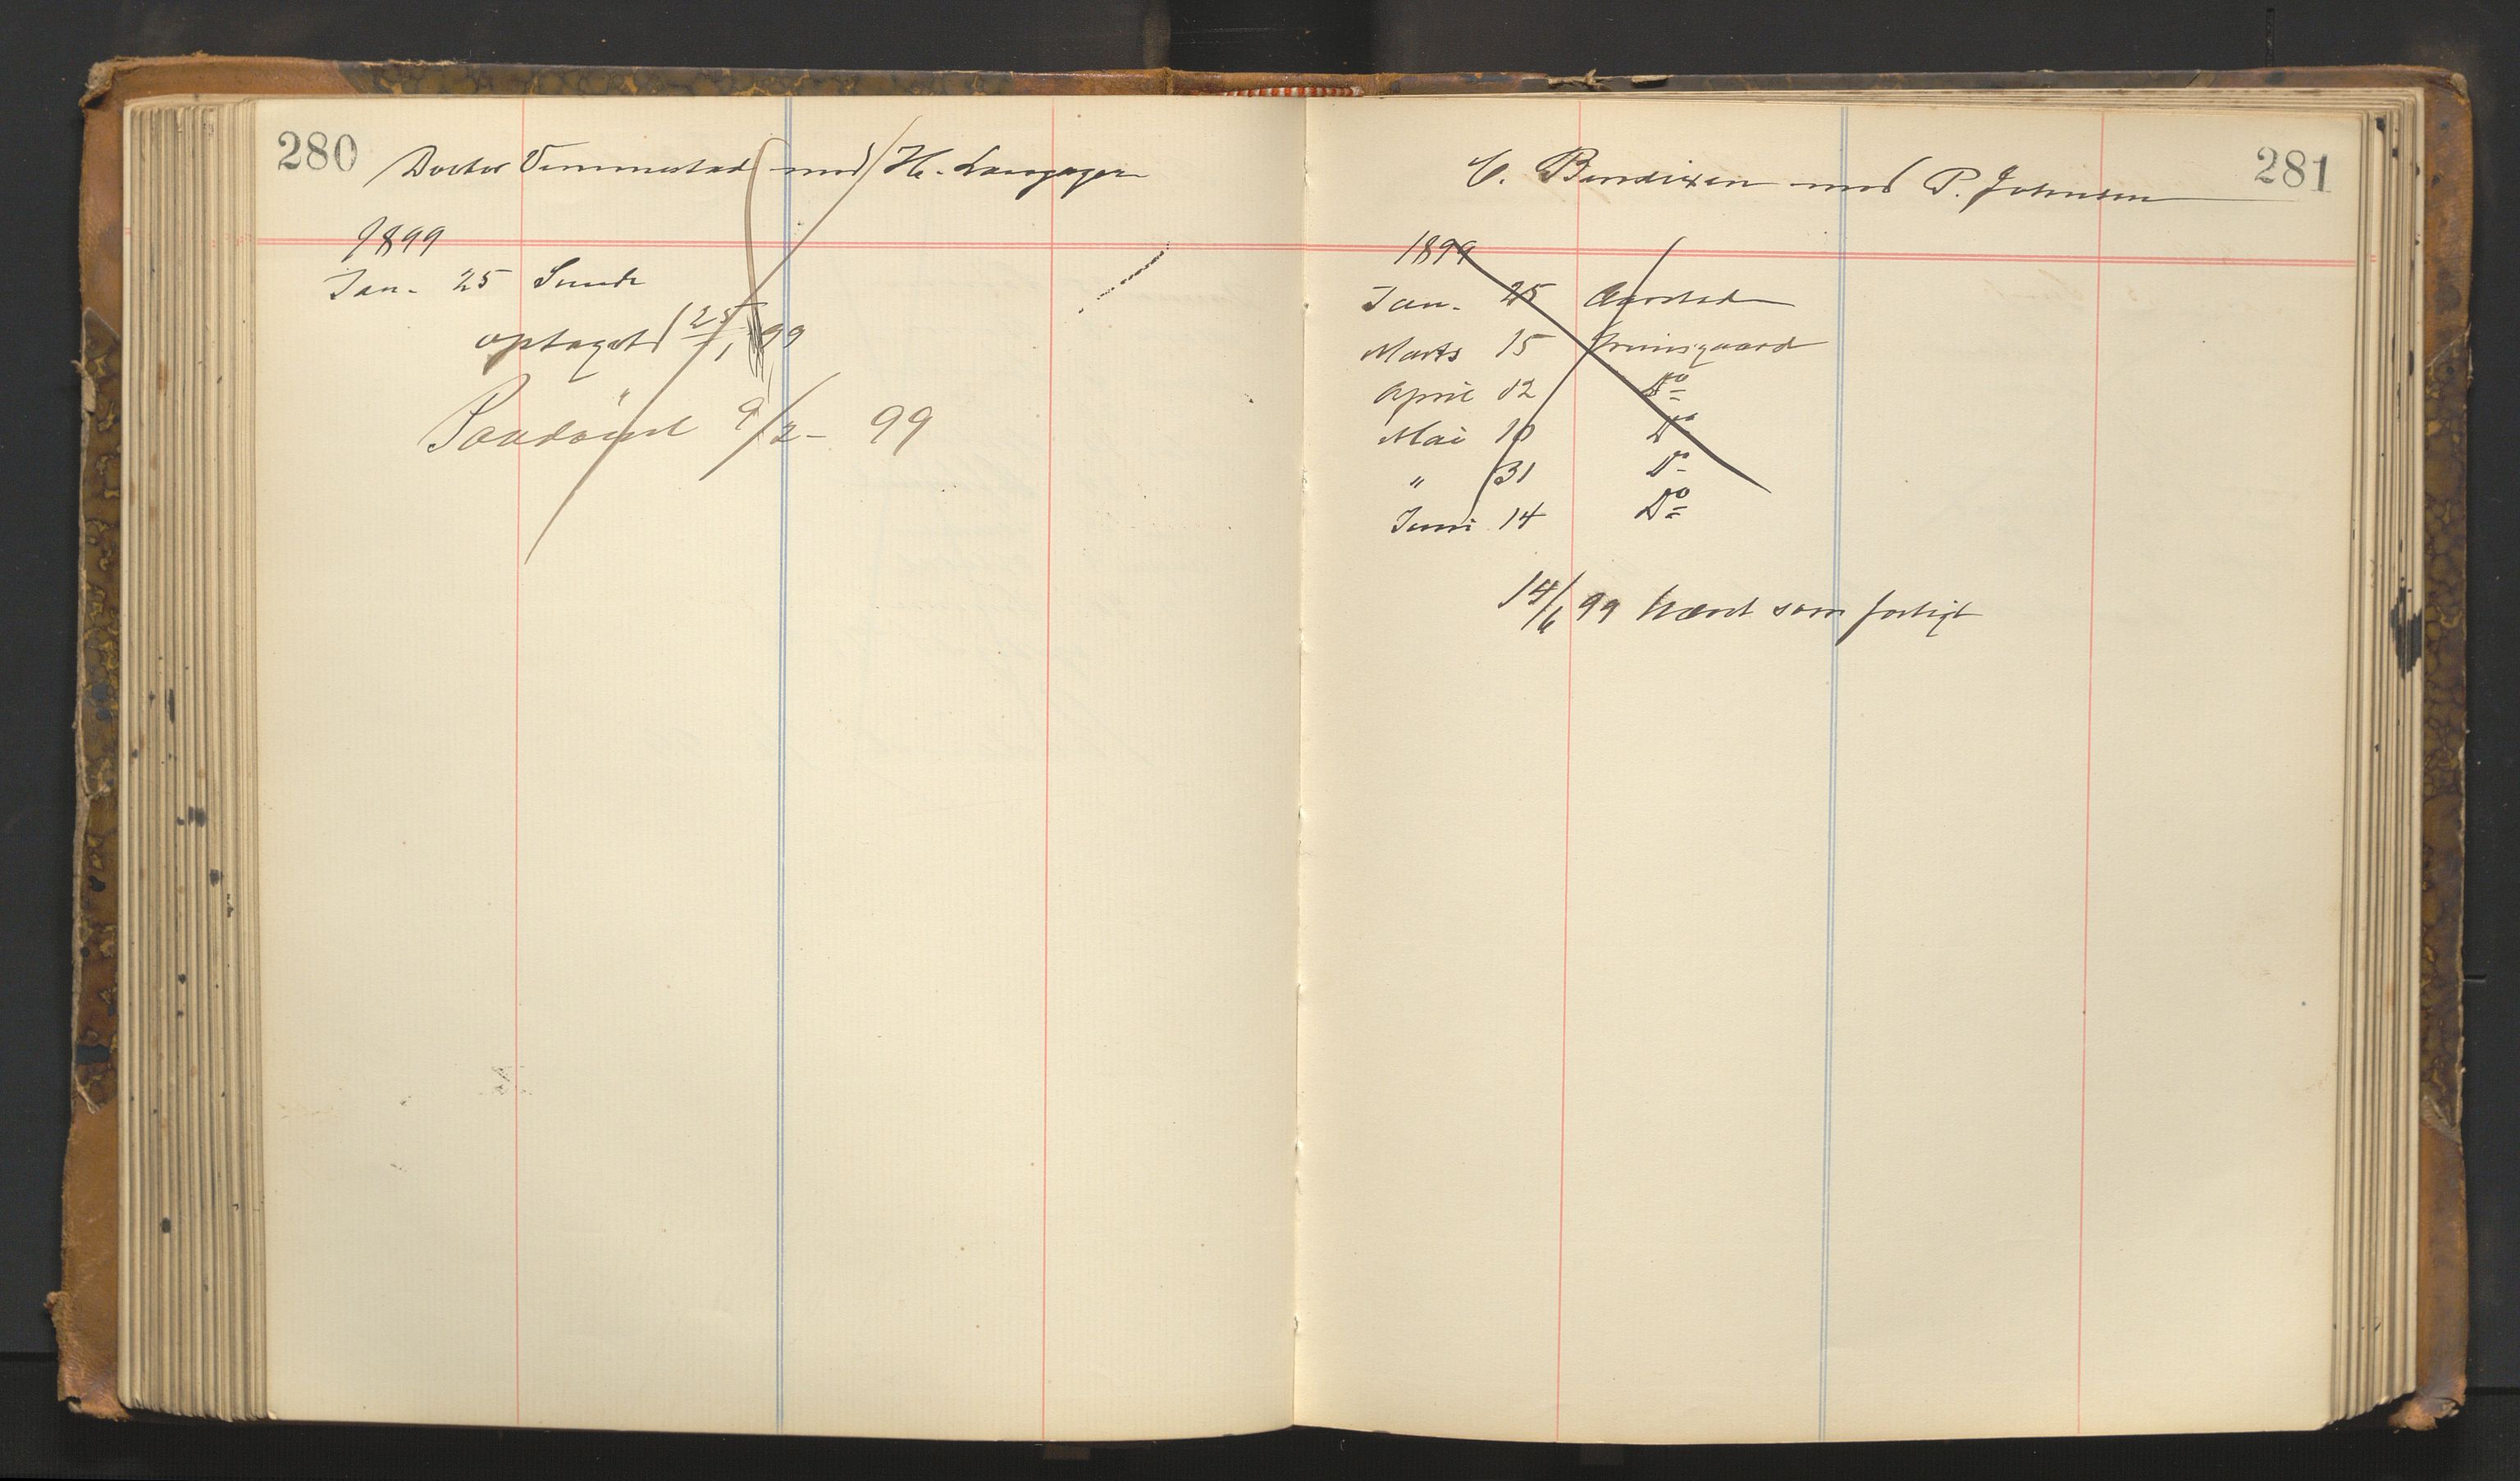 280
Doctor Vemmestad mod H. Langager
1899
Jan. 25 Sunde
optaget 25/1 99
Paadømt 9/2 - 99
281
C. Bendixen mod P. Johnsen
1899
Jan. 25 Aarstad
Marts 15 Grimsgaard
April 12 Do
Mai 10 Do
" 31 Do
Juni 14 Do
14/6 99 hævet som forligt